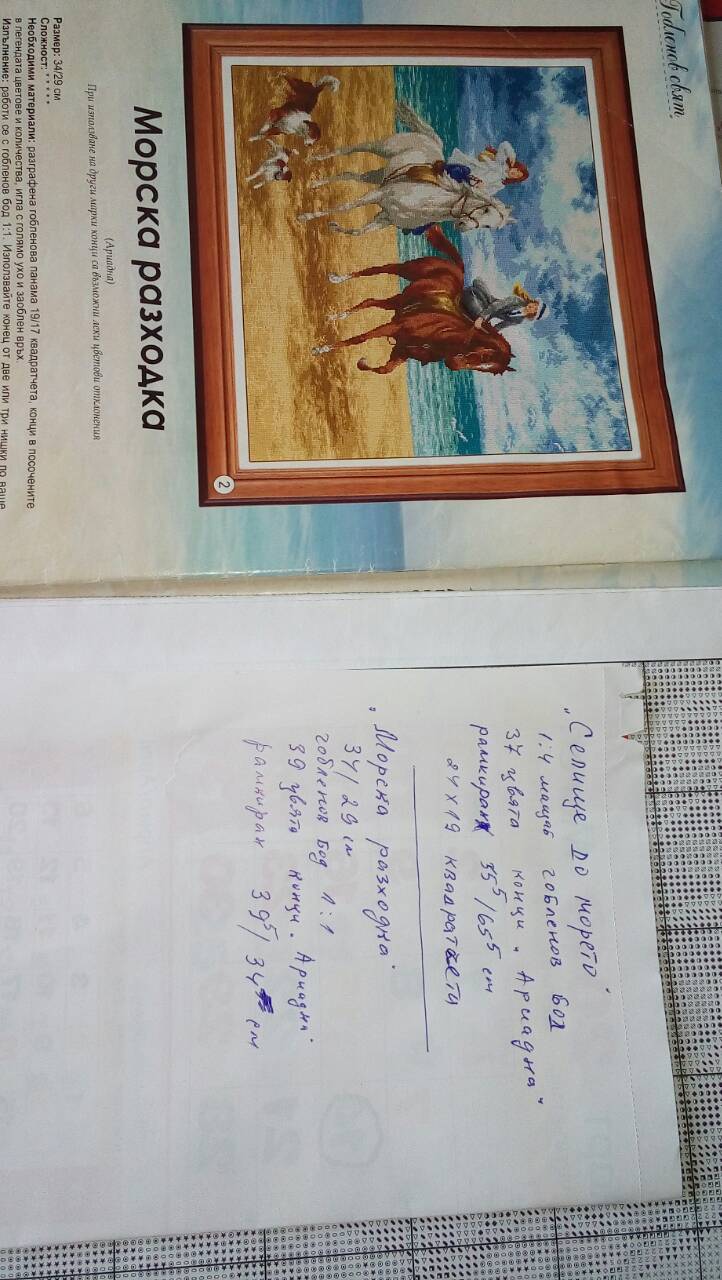 Гобленов свят
2
Морска разходка
(Ариадна)
При използване на други марки конци са възможни леки цветови отклонения
Размер: 34/29 см
Сложност: • • • • •
Необходими материали: разграфена гобленова панама 19/17 квадратчета, конци в посочените
в легендата цветове и количества, игла с голямо ухо и заоблен връх.
Изпълнение: работи се с гобленов бод 1:1. Използвайте конец от две или три нишки по ваше
„Селище до морето"
1:4 мащаб гобленов бод
37 цвята конци „Ариадна"
рамкиран 35⁵/65⁵ см
24 x 19 квадратчети
„Морска разходка"
34/29 см
гобленов бод 1:1
39 цвята конци „Ариадна"
рамкиран 39⁵/34 см